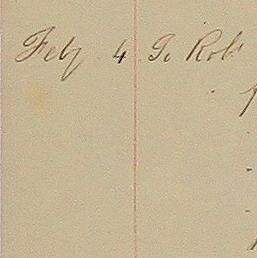 Feby 4 To Robt